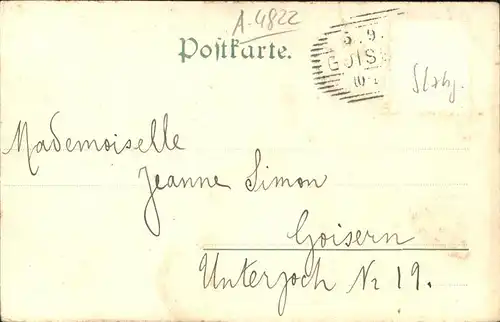 A-4822
Postkarte.
5.9.
GOIS
Mademoiselle
Jeanne Simon
Goisern
Unterjoch No 19.